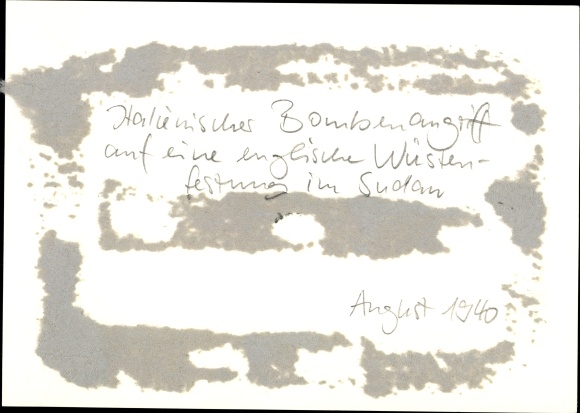 Italienischer Bombenangriff
auf eine englische Wüsten-
festung im Sudan
August 1940